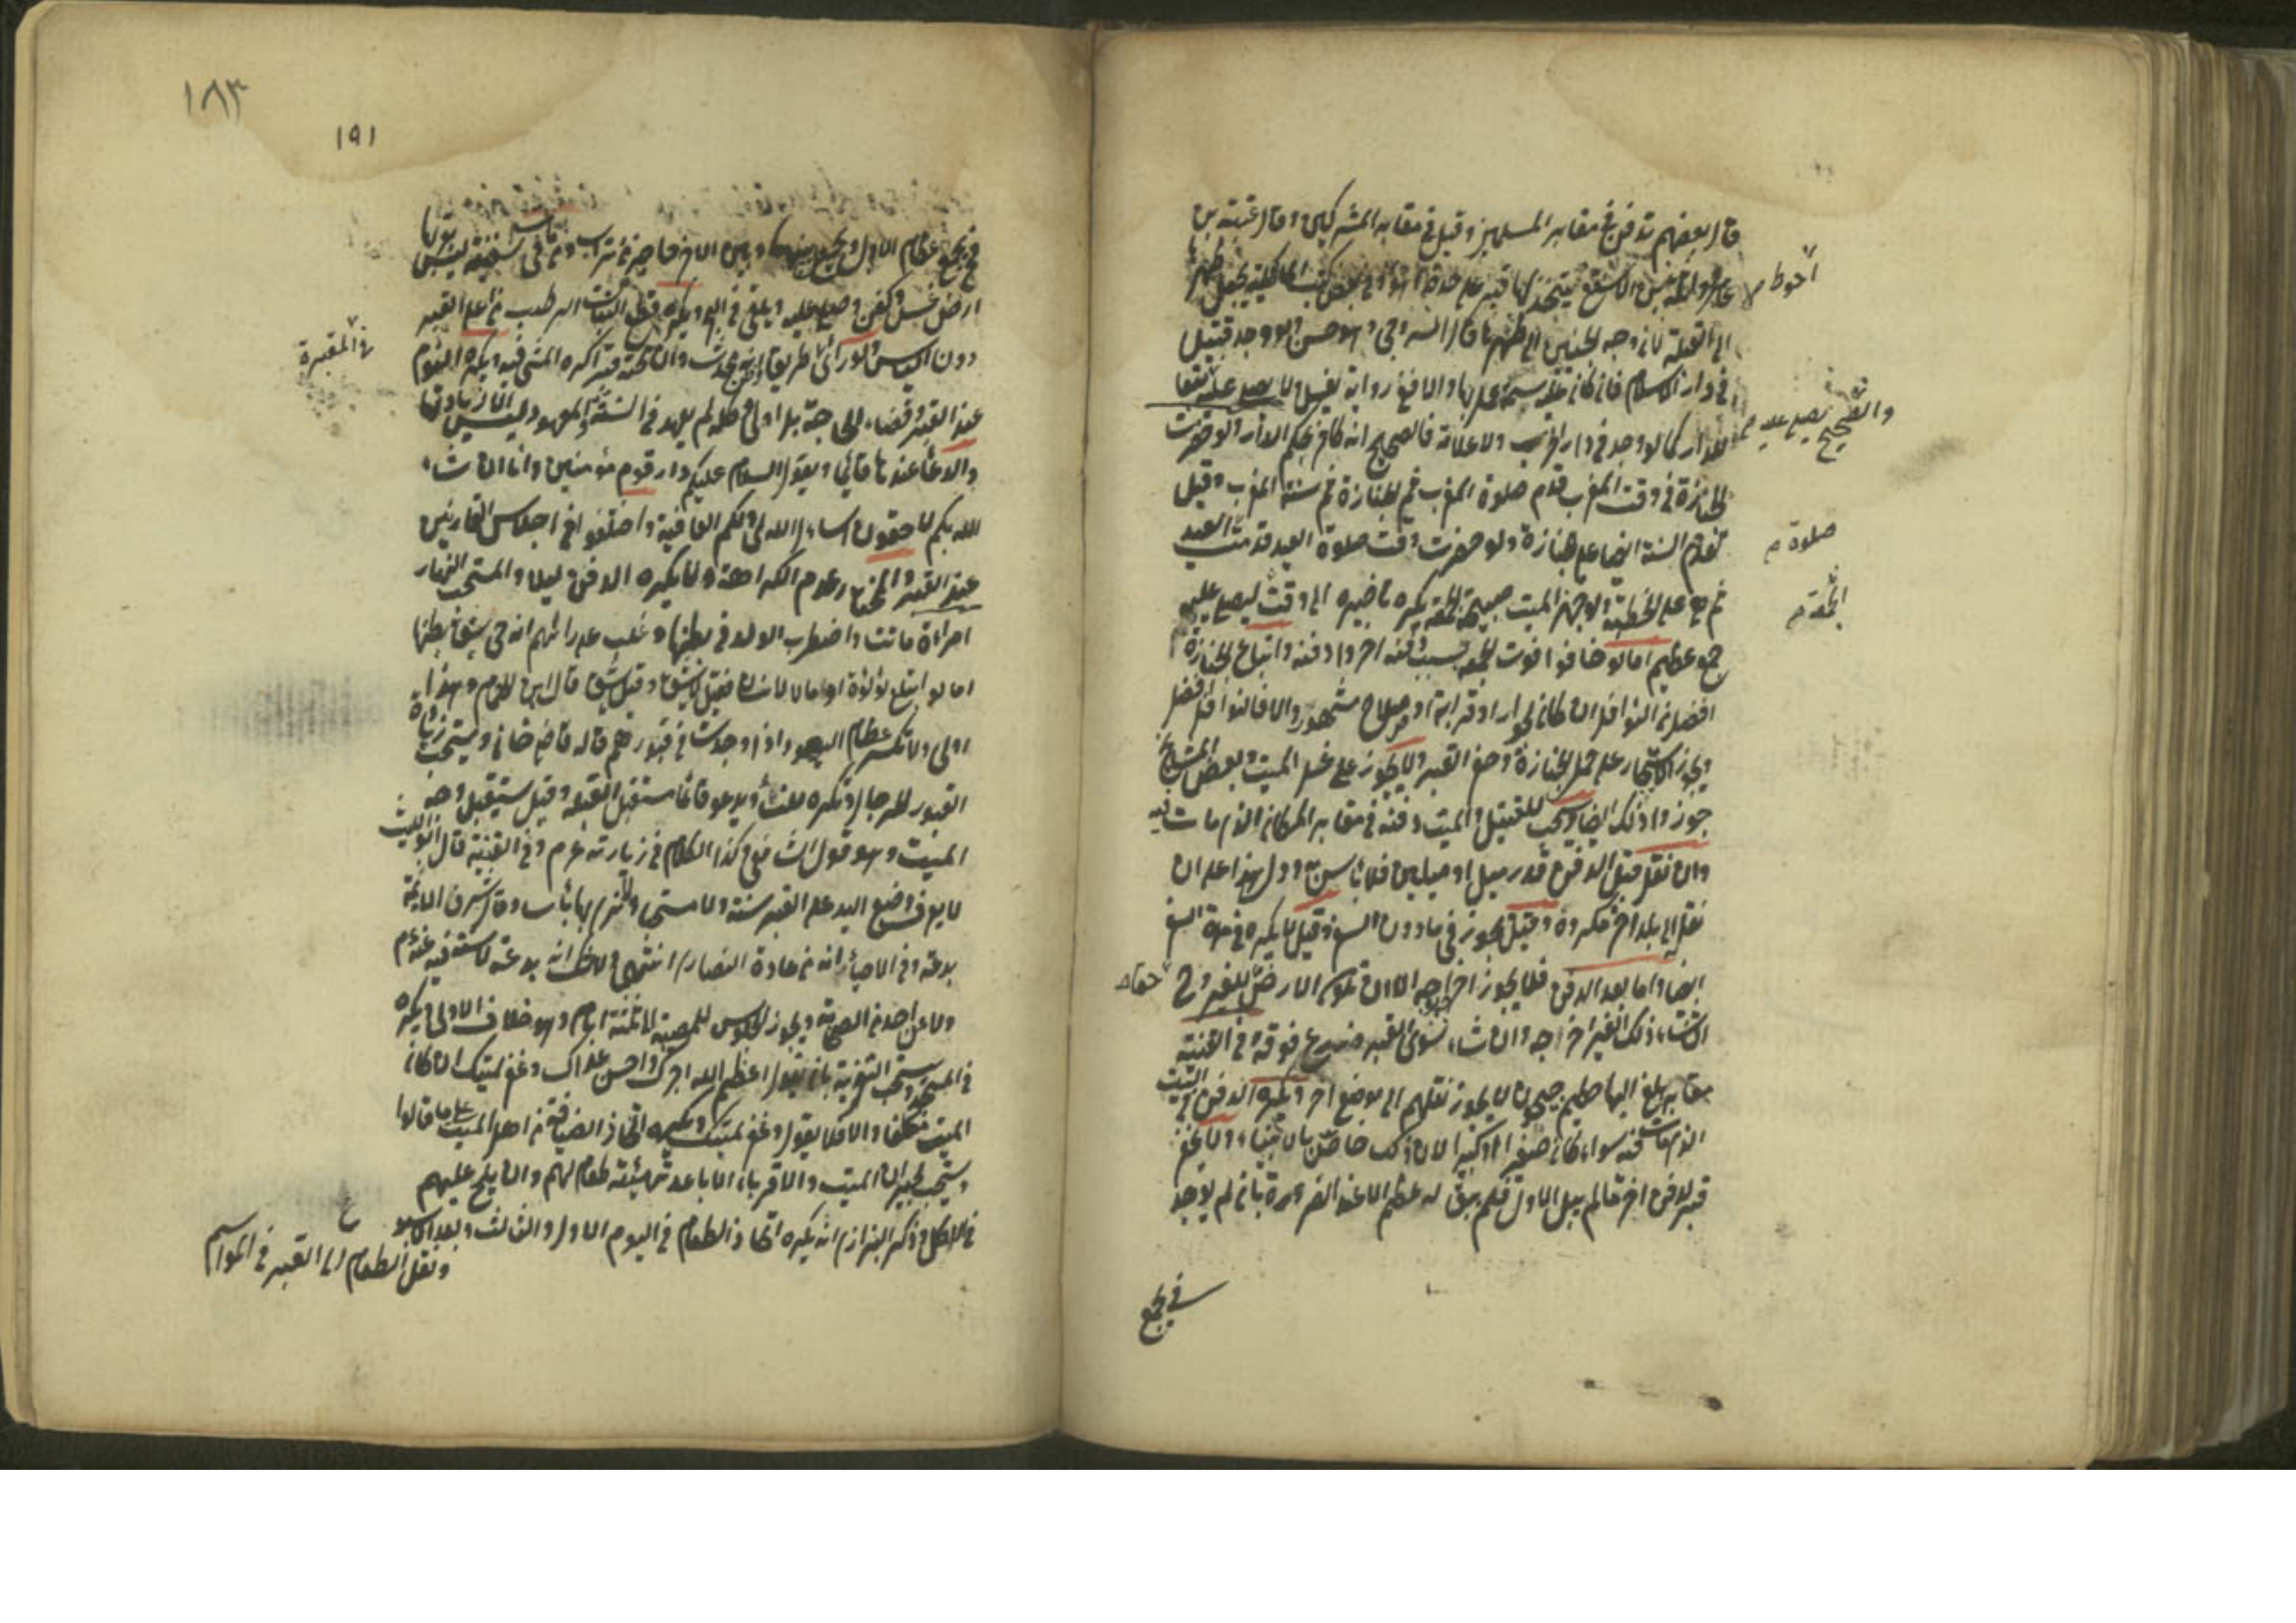 قال بعضهم تدفن في مقابر المسلمين وقيل في مقابر المشركين وقال عقبة بن
عامر وواثلة بن الاسقع يتخذ لها قبر على حدة وهو احوط وفي بعض كتب المالكية يجعل ظهرها
الى القبلة لان وجه الجنين الى ظهرها قال السروجي وهو حسن ولو وجد قتيل
في دار الاسلام فان كان عليه سيما على بها والا ففي رواية يغسل ولا يصلى عليه تبعا
والصحيح يصلى عليه
للدار كما لو وجد في دار الحرب ولا علامة فالصحيح انه كافر بحكم الدار ولو حضرت
الجنازة في وقت المغرب قدم صلوة المغرب ثم الجنازة ثم سنة المغرب وقيل
تقدم السنة ايضا على الجنازة ولو حضرت وقت صلوة العيد قدمت صلوة العيد
ثم هي على الخطبة ولو جهز الميت صبيحة الجمعة يكره تاخيره الى وقت ليصلي عليه
الجمعة
جمع عظيم اما لو خافوا فوت الجمعة بسبب دفنه اخروا دفنه واتباع الجنازة
افضل من النوافل ان كان لجوار او قرابة او صلاح مشهور والا فالنوافل افضل
ويجوز الاستيجار على حمل الجنازة وحفر القبر ولا يجوز على غسل الميت وبعض المشايخ
جوزوا ذلك ايضا ويستحب للقتيل والميت دفنه في مقابر المكان الذي مات فيه
وان نقل قبل الدفن قدر ميل او ميلين فلا باس به ودل هذا على ان
نقله الى بلد اخر مكروه وقيل يجوز في ما دون السفر وقيل لا يكره في مدة السفر
ايضا واما بعد الدفن فلا يجوز اخراجه الا ان تكون الارض للغير وح
ان شاء ذلك الغير اخراجه وان شاء سوى القبر وزرع فوقه وفي القنية
مقابر بلغ اليها جيحون لا يجوز نقلهم الى موضع اخر ويكره الدفن في البيت
الذي مات فيه سواء كان صغيرا او كبيرا لان ذلك خاص بالانبياء ولا يحفر
قبر لدفن اخر ما لم يبل الاول فلم يبق له عظم الا عند الضرورة بان لم يوجد
في يجمع
١٨٣
١٩١
فيجمع عظام الاول ويجعل بينهما وبين الاول حاجز من تراب ومن مات في سفينة ليس بقربها
ارض غسل وكفن وصلي عليه ويلقى في البحر ويكره قطع النبات الرطب من اعلى القبر
دون اليابس ولو راى طريقا في المقبرة انه محدث وان تحته قبرا كره المشي فيه ويكره النوم
عند القبر وقضاء الحاجة بل اولى وكل ما لم يعهد في السنة والمعهود ليس الا زيارتها
والدعاء عندها قائما ويقول السلام عليكم دار قوم مؤمنين وانا ان شاء
الله بكم لاحقون اسال الله لي ولكم العافية واختلفوا في اجلاس القارئين
عند القبر والمختار عدم الكراهة ولا يكره الدفن ليلا والمستحب النهار
امراة ماتت واضطرب الولد في بطنها وغلب على رايهم انه حي يشق بطنها
اما لو ابتلع لؤلؤة او مالا لانسان فقيل لا يشق وقيل يشق قال ابن الهمام وهذا
اولى ولا تكسر عظام اليهود اذا وجدت في قبورهم قاله قاضي خان ويستحب زيارة
القبور للرجال وتكره للنساء ويدعو قائما مستقبل القبلة وقيل يستقبل وجه
الميت وهو قول الشافعي وكذا الكلام في زيارته عم وفي القنية قال ابو الليث
لا يعرف وضع اليد على القبر سنة ولا مستحبا ولا نرى بها باسا وقال شرف الائمة
بدعة وفي الاحياء انه من عادة النصارى انتهى ولا شك انه بدعة لا سنة فيه عنه عم
ولا عن احد من الصحابة ويجوز الجلوس للمصيبة ثلثة ايام وهو خلاف الاولى ويكره
في المسجد ويستحب التعزية بان يقول اعظم الله اجرك واحسن عزاك وغفر لميتك ان كان
الميت مكلفا والا فلا يقول وغفر لميتك ويكره اتخاذ الضيافة من اهل الميت على ما قالوا
ويستحب لجيران الميت والاقرباء الاباعد تهيئة طعام لهم وان يلح عليهم
في الاكل وذكر البزازي انه يكره اتخاذ الطعام في اليوم الاول والثالث وبعد الاسبوع
ونقل الطعام الى القبر في المواسم